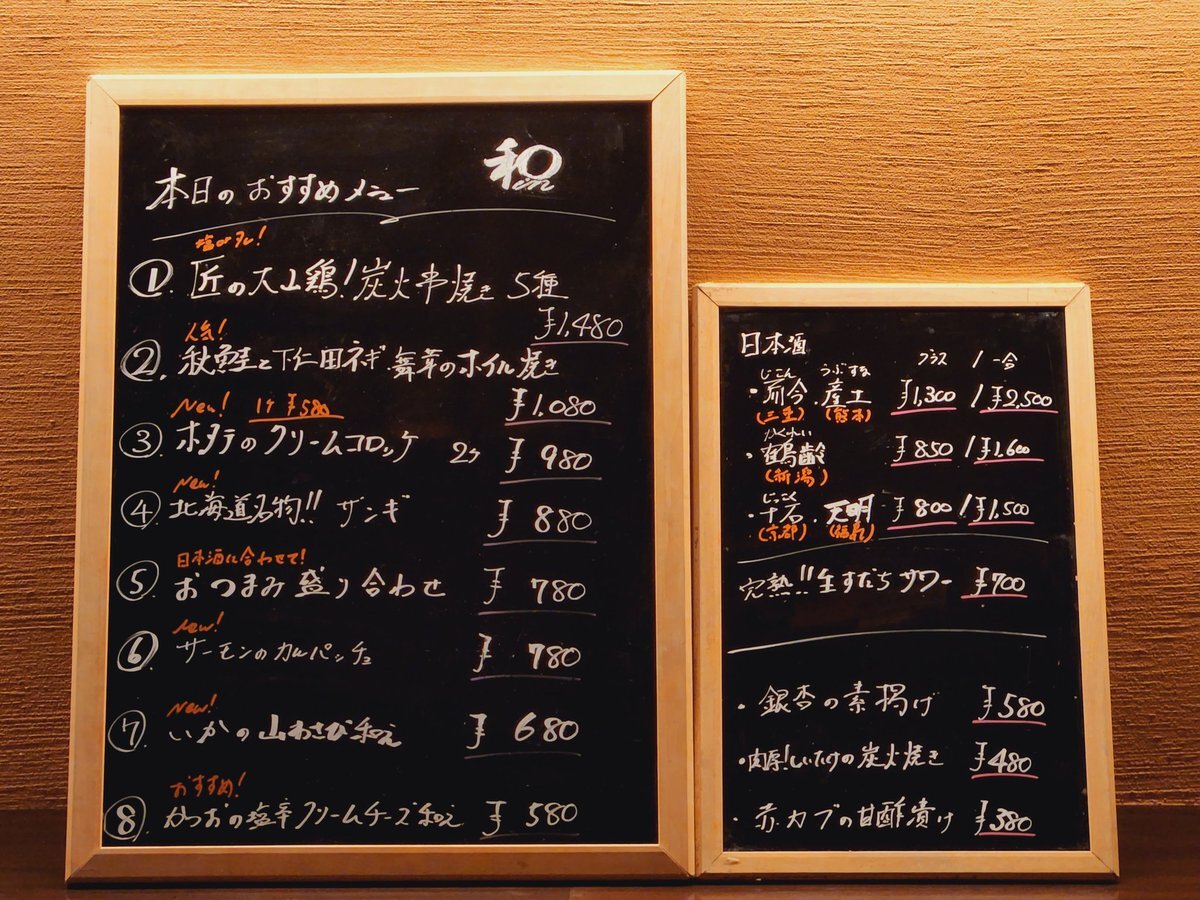 和
本日のおすすめメニュー
塩orタレ!
① 匠の大山鶏!炭火串焼き 5種
¥1,480
人気!
② 秋鮭と下仁田ネギ 舞茸のホイル焼き
¥1,080
New! 1ケ ¥580
③ ホタテのクリームコロッケ 2ケ ¥980
New!
④ 北海道名物!! ザンギ ¥880
日本酒に合わせて!
⑤ おつまみ盛り合わせ ¥780
New!
⑥ サーモンのカルパッチョ ¥780
New!
⑦ いかの山わさび和え ¥680
おすすめ!
⑧ かつおの塩辛クリームチーズ和え ¥580
日本酒 グラス / 一合
じこん うぶすな
・而今・産土 ¥1,300 / ¥2,500
(三重) (熊本)
かくれい
・鶴齢 ¥850 / ¥1,600
(新潟)
じっこく
・十石・天明 ¥800 / ¥1,500
(京都) (福島)
完熟!!生すだちサワー ¥700
・銀杏の素揚げ ¥580
・肉厚!しいたけの炭火焼き ¥480
・赤カブの甘酢漬け ¥380